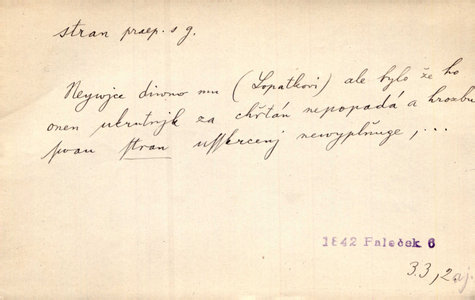 stran praep. s g.
Neywjce diwno mu (Lopatkovi) ale bylo že ho
onen ukrutnjk za chřtán nepopadá a hrozbu
swau stran usskrcenj newyplňuge, ...
1842 Faleček 6
3.3, 2